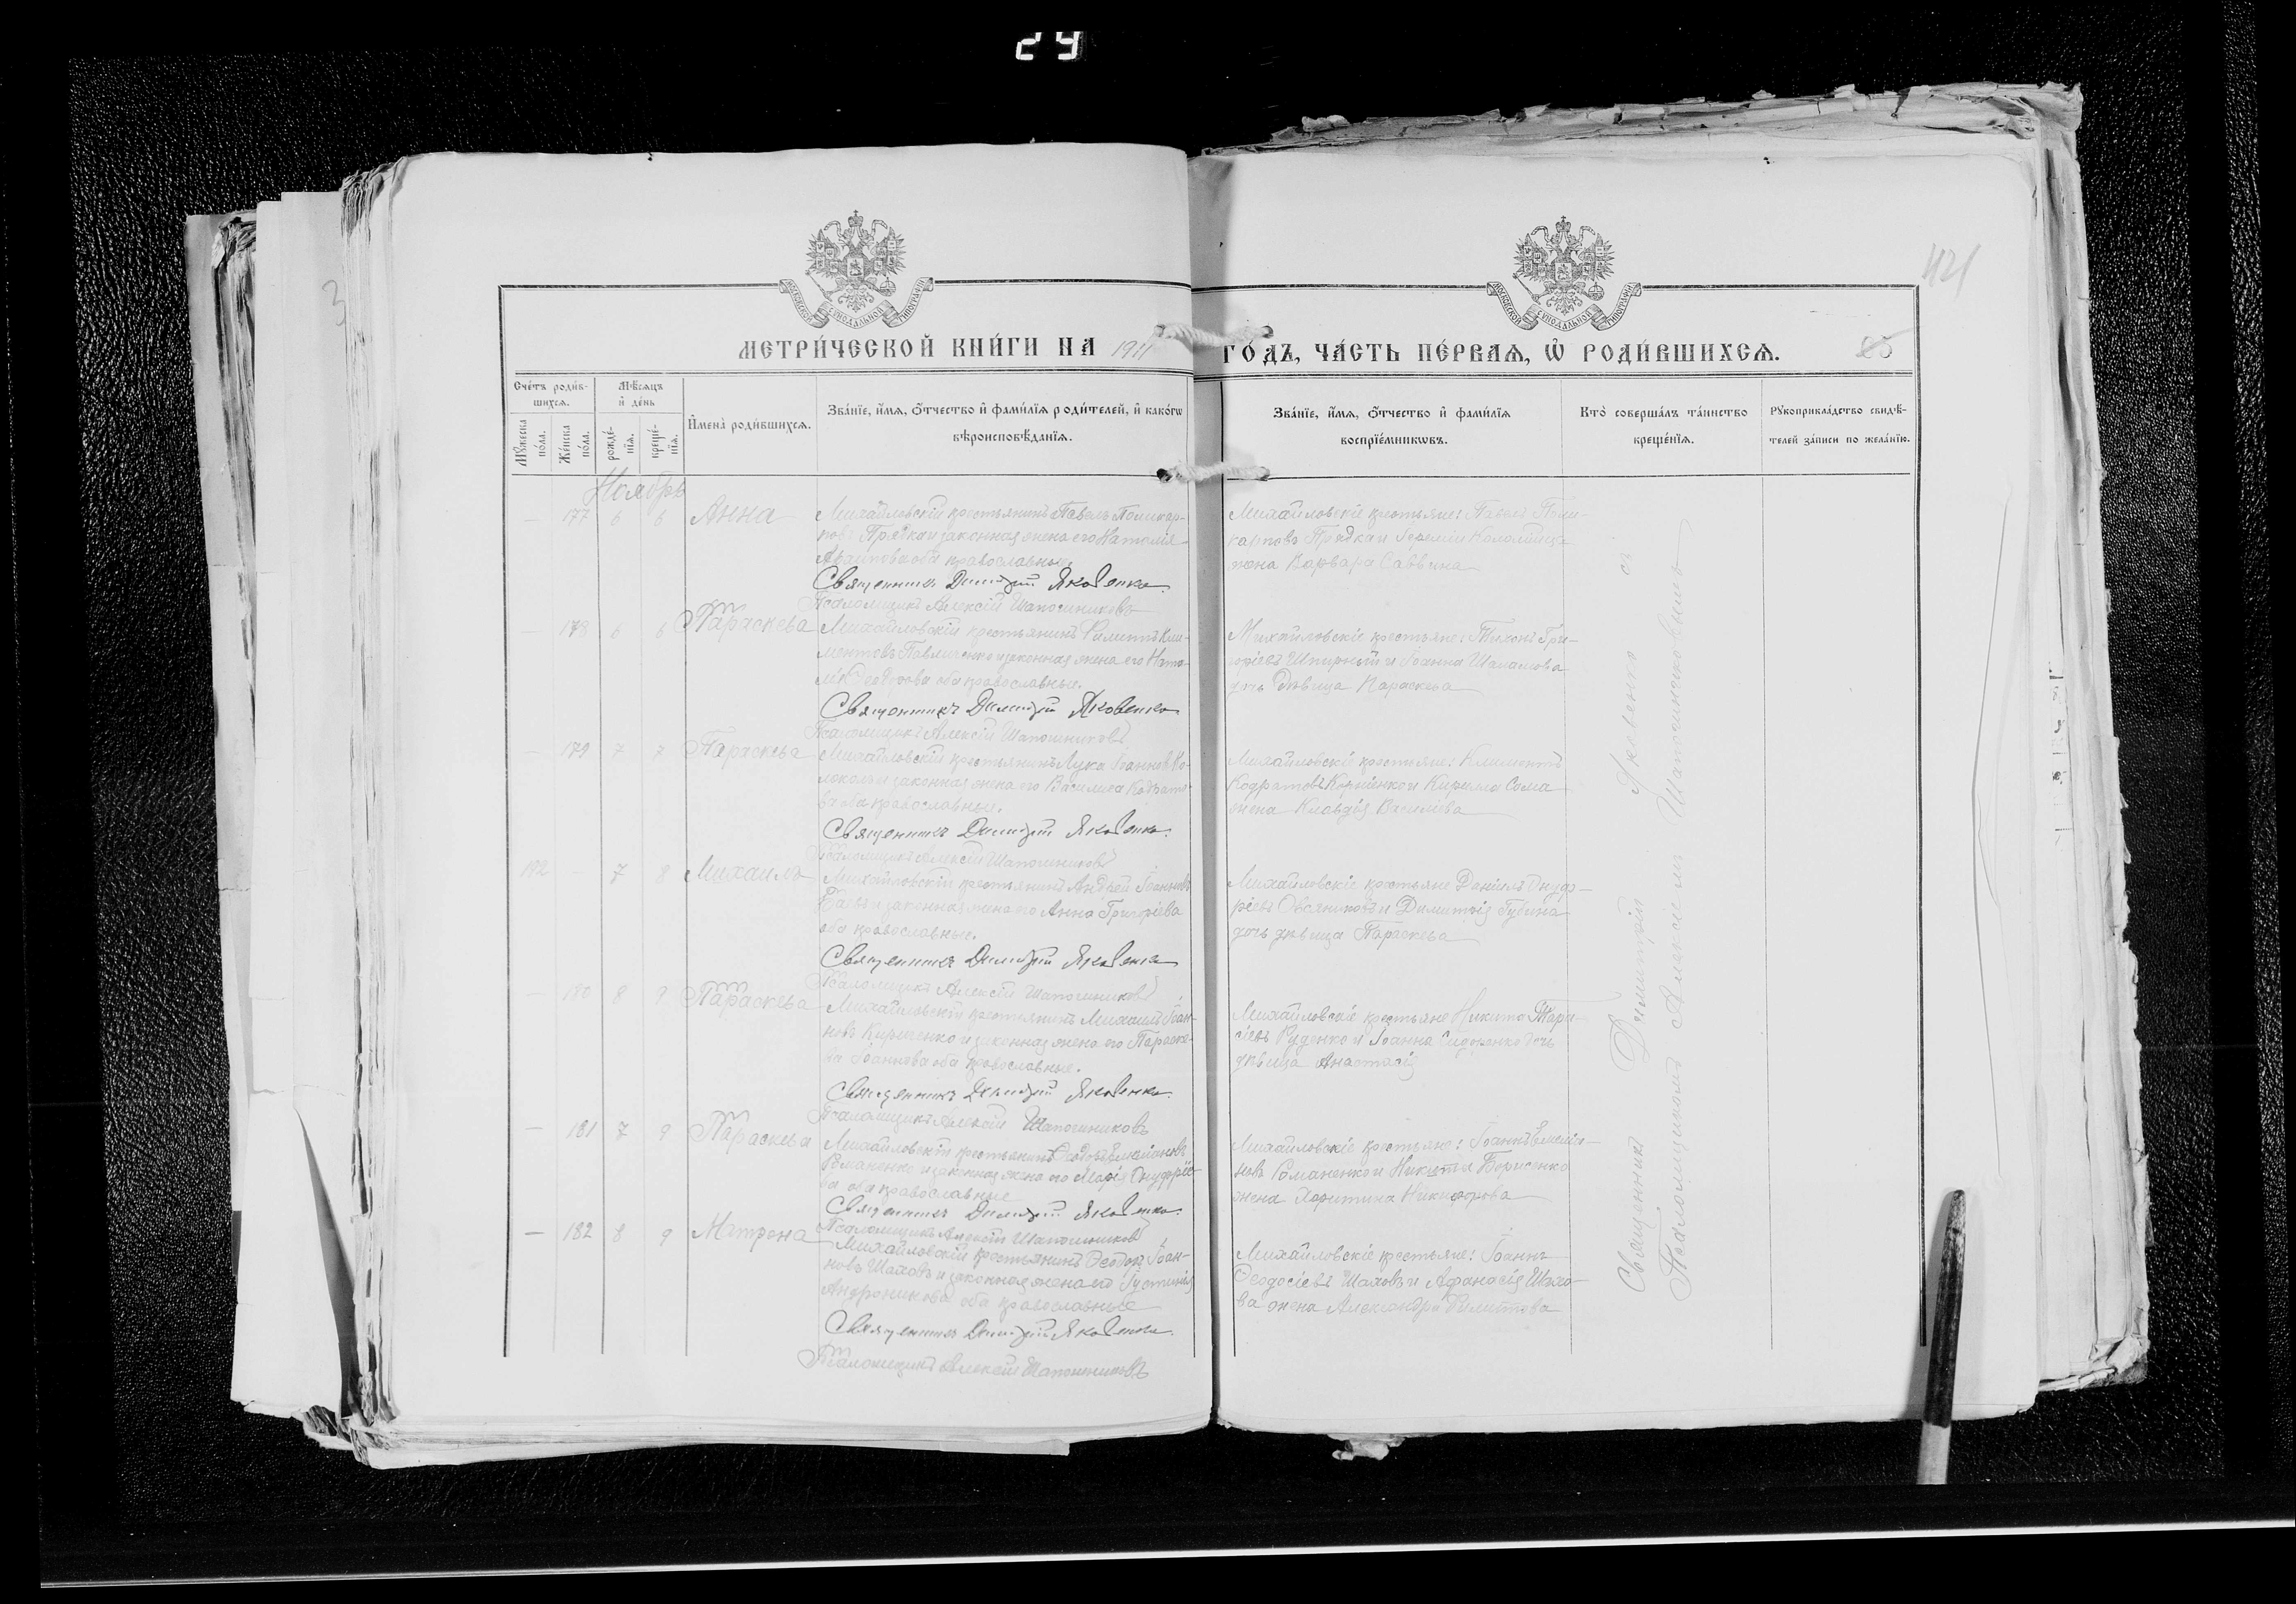 24
421
3
МОСКОВСКОЙ СѴНОДАЛЬНОЙ ТИПОГРАФІИ
МОСКОВСКОЙ СѴНОДАЛЬНОЙ ТИПОГРАФІИ
МЕТРИ́ЧЕСКОЙ КНИ́ГИ НА 1911
ГО́ДЪ, ЧА́СТЬ ПЕ́РВАѦ, Ѡ҆ РОДИ́ВШИХСѦ.
85
Сче́тъ роди́в-
шихсѧ.
Мꙋ́жеска по́ла.
Же́нска по́ла.
Мѣ́сѧцъ и҆ де́нь
рожде́-нїѧ.
креще́-нїѧ.
И҆мена̀ роди́вшихсѧ.
Зва́нїе, и҆́мѧ, ѻ҆́тчество и҆ фами́лїѧ роди́телей, и҆ како́гѡ
вѣроисповѣ́данїѧ.
Зва́нїе, и҆́мѧ, ѻ҆́тчество и҆ фами́лїѧ
воспрїе́мникѡвъ.
Кто̀ соверша́лъ та́инство
креще́нїѧ.
Рꙋкоприкла́дство свидѣ́-
телей за́писи по жела́нїю.
Ноябрь
— 177 6 6 Анна
Михайловскій крестьянинъ Павелъ Поликар-
повъ Прядка и законная жена его Наталія
оба православные.
Священникъ Димитрій Яковенко.
Псаломщикъ Алексій Шапошниковъ
Михайловскіе крестьяне: Павелъ Поли-
карповъ Прядка и Іереміи Коломійца
жена Варвара Саввина
— 178 6 6 Параскева
Михайловскій крестьянинъ Филиппъ Кли-
ментовъ Павличенко и законная жена его Ната-
лія оба православные.
Священникъ Димитрій Яковенко
Псаломщикъ Алексій Шапошниковъ
Михайловскіе крестьяне: Тихонъ Гри-
горіевъ и Іоанна Шаламова
дочь дѣвица Параскева
— 179 7 7 Параскева
Михайловскій крестьянинъ Лука Іоанновъ Ко-
и законная жена его Василиса Кодрато-
ва оба православные.
Священникъ Димитрій Яковенко.
Псаломщикъ Алексій Шапошниковъ
Михайловскіе крестьяне: Климентъ
Кодратовъ Корніенко и Кирилла Сома
жена Клавдія Василіева
192 — 7 8 Михаилъ
Михайловскій крестьянинъ Андрей Іоанновъ
и законная жена его Анна Григоріева
оба православные.
Священникъ Димитрій Яковенко
Псаломщикъ Алексій Шапошниковъ
Михайловскіе крестьяне Даніилъ Онуф-
ріевъ Овсяниковъ и Димитрія Губина
дочь дѣвица Параскева
— 180 8 9 Параскева
Михайловскій крестьянинъ Михаилъ Іоан-
новъ Кириченко и законная жена его Параске-
ва Іоаннова оба православные.
Священникъ Димитрій Яковенко.
Псаломщикъ Алексій Шапошниковъ
Михайловскіе крестьяне Никита Тара-
сіевъ Руденко и Іоанна Сидоренко дочь
дѣвица Анастасія
— 181 7 9 Параскева
Михайловскій крестьянинъ Ѳеодоръ Емеліановъ
Романенко и законная жена его Марія Онуфріе-
ва оба православные
Священникъ Димитрій Яковенко.
Псаломщикъ Алексій Шапошниковъ
Михайловскіе крестьяне: Іоаннъ Емелія-
новъ Романенко и Никиты Борисенко
жена Харитина Никифорова
— 182 8 9 Матрона
Михайловскій крестьянинъ Ѳеодоръ Іоан-
новъ Шаховъ и законная жена его Іустинія
Андроникова оба православные
Священникъ Димитрій Яковенко.
Псаломщикъ Алексій Шапошниковъ
Михайловскіе крестьяне: Іоаннъ
Ѳеодосіевъ Шаховъ и Афанасія Шахо-
ва жена Александра Филиппова
Священникъ Димитрій Яковенко съ
Псаломщикомъ Алексіемъ Шапошниковымъ